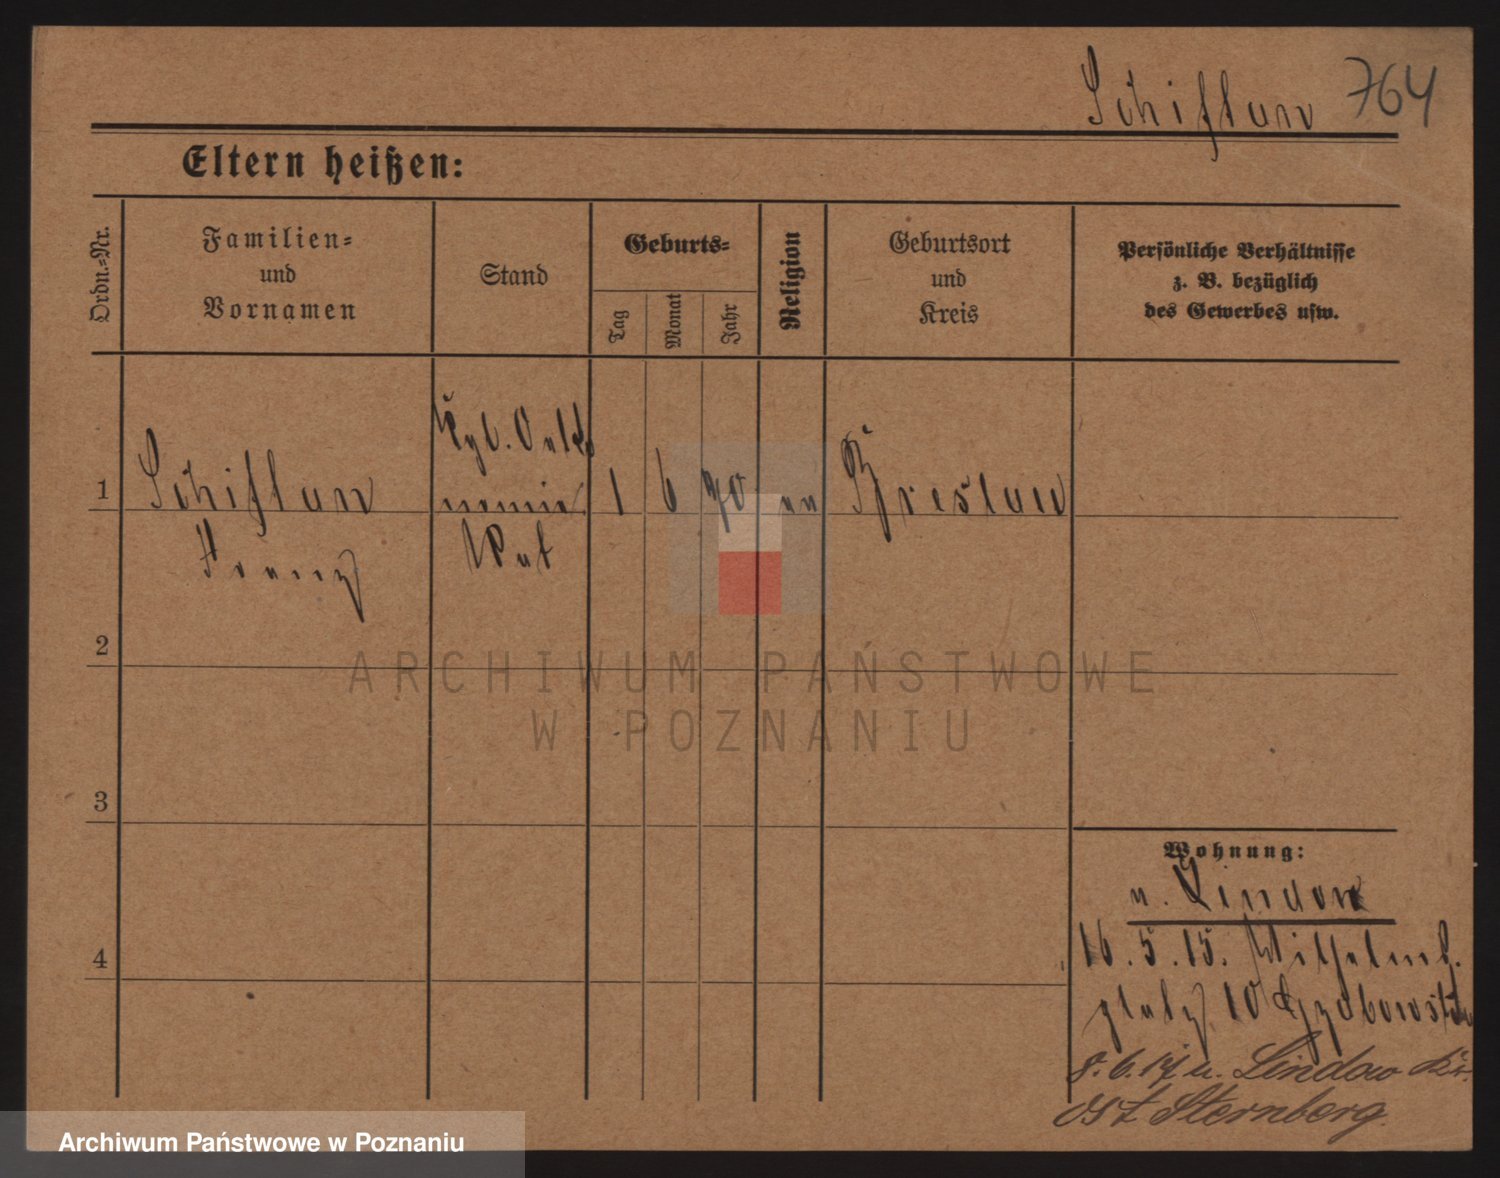 Schiflan 764
Eltern heißen:
Ordn.=Nr.
Familien=
und
Vornamen
Stand
Geburts=
Tag
Monat
Jahr
Religion
Geburtsort
und
Kreis
Persönliche Verhältnisse
z. B. bezüglich
des Gewerbes usw.
1
Schiflan
Franz
Kgl. Oeko
nomie
Rat
1 6 70
Breslau
2
3
4
ARCHIWUM PAŃSTWOWE
W POZNANIU
Wohnung:
n. Lindow
16. 5. 15. Wilhelms.
platz 10
8. 6. 17 n. Lindow Kr.
Ost Sternberg.
Archiwum Państwowe w Poznaniu